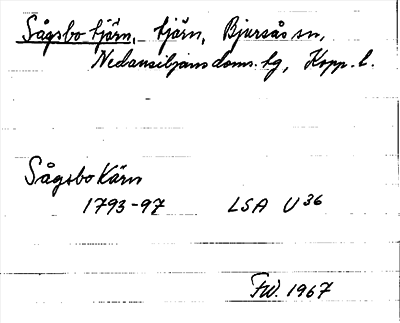 Sågsbo tjärn, tjärn, Bjursås sn,
Nedansiljans doms. tg, Kopp. l.
Sågsbo Kärn
1793-97 LSA U36
FW. 1967